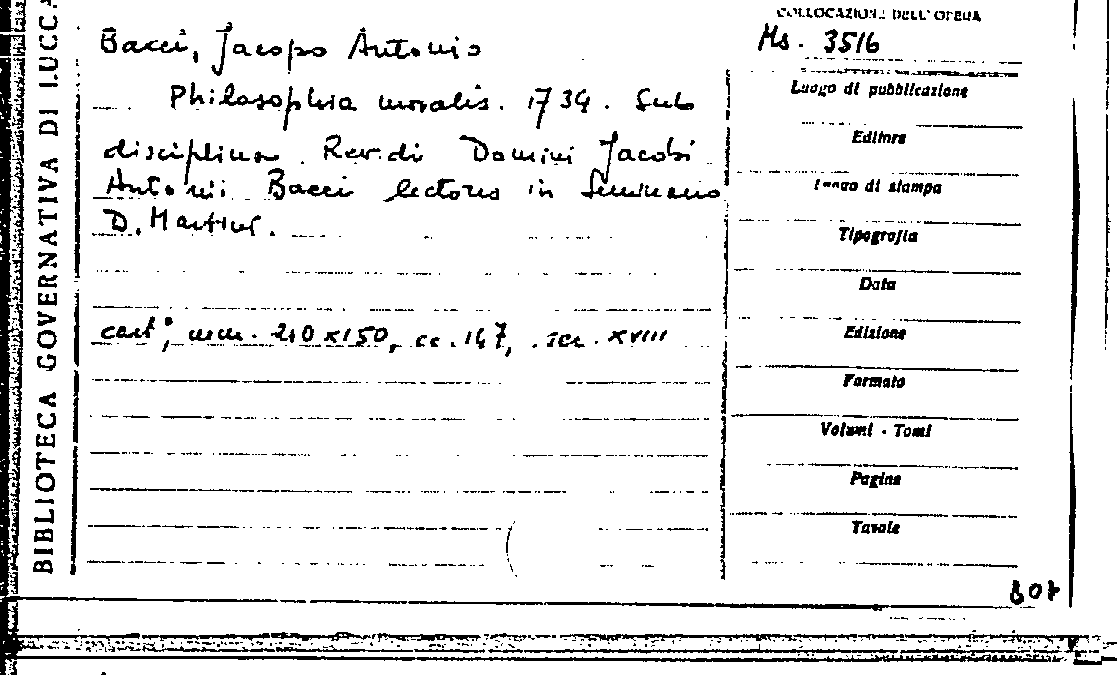 BIBLIOTECA GOVERNATIVA DI LUCCA
COLLOCAZIONE DELL'OPERA
Ms. 3516
Bacci, Jacopo Antonio
Philosophia moralis. 1734. Sub
disciplina Rev.di Domini Jacobi
Antonii Bacci lectoris in Seminario
D. Martini.
cart., mm. 210x150, cc. 147, sec. XVIII
Luogo di pubblicazione
Editore
Luogo di stampa
Tipografia
Data
Edizione
Formato
Volumi - Tomi
Pagine
Tavole